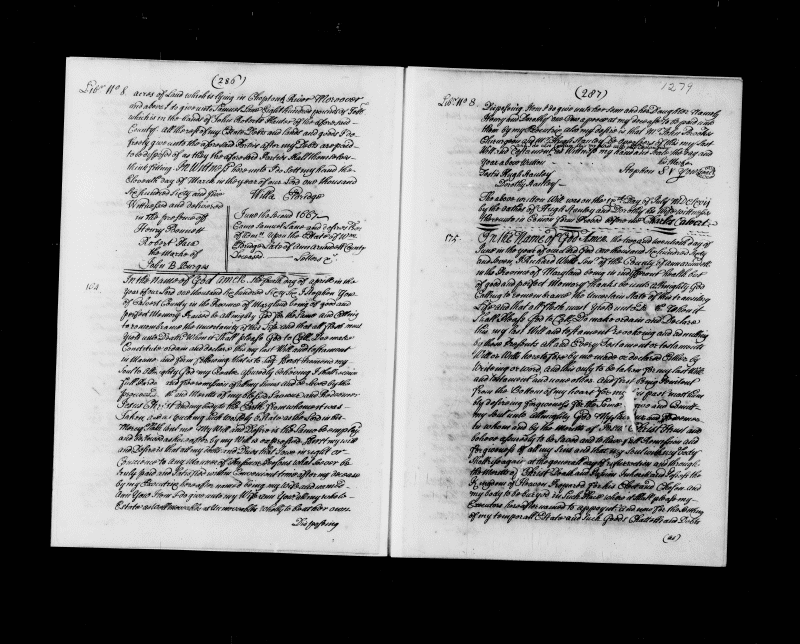 (286)
Libr. No 8. acres of Land which is lying in Choptank River Moreover
and above I do give unto Samuel Lane Eight hundred pounds of Tobb.
which is in the hands of John Roberts of the aforesaid
County all the rest of my Estate Debts and lands and goods I do
freely give unto the aforesaid after my Debts are paid
to be disposed of as they the aforesaid shall
think fitting In Witness I here unto Do sett my hand the
Eleventh day of March in the year of our Lord one thousand
Six hundred Sixty and
Willa Elbridge
Witnessed and delivered
in the presence of
Henry Bennett
Robert
the marke of
John B Burges
June the second 1667
Came Samuel Lane and
of upon the Estate of Wm
Elbridge Late of Annarundll County
Deceased Letters &c.
In the Name of God Amen. the day of aprill in the
Year of our Lord one thousand Six hundred Sixty Six I Stephen Yow
of Calvert County in the Province of Maryland being of good and
perfect Memory Praised be almighty God for the same and calling
to remembrance the uncertainty of this Life and that all flesh must
yield unto Death When it shall please God to Call, Do make
Constitute ordain and declare this my last Will and testament
in Manner and form following that is to say First I
Soul to Allmighty God my Creator assuredly believing I shall receive
full Pardon and free remission of all my Sinns and be saved by the
precious and Merits of my blessed Saviour and Redeemer
Jesus Christ and my body to the Earth from whence it was
taken, and as touching such worldly Estate as the Lord in his
Mercy hath lent me My Will and Desire is the same be employed
and as hereafter by my Will is expressed. First my will
and Desire is that all my debts and Duties that I owe in right or
Conscience to any Manner of Person or Persons whatsoever be
truly paid and satisfied at convenient time after my decease
by my Executrix hereafter named being my Wife and named
Ann Yow Item I do give unto my Wife Ann Yow all my whole
Estate as well moveable as Unmoveable wholly to be at her own
Disposeing
1279
(287)
Libr. No 8. Disposeing Item I do give unto her Son and her Daughter Namely
Henry and Dorothy one Cow a peece at my decease to be paid unto
them by my Executrix also my desire is that Mr John
Hugh Hanley be overseers of this my last
Will and Testament in Witness I my hand and Seale the day and
Year above Written
his Marke
Stephen S Y Yow
Teste Hugh Hanley
Dorothy Hanley
The above written Will was on the Day of July
by the oathes of Hugh Hanley and Dorothy his Wife witnesses
thereunto in Common Form Proved before me Charles Calvert
In the Name of God Amen. the day of
June in the year of our Lord God One thousand Six hundred Sixty
and Seven, I Richard Wells Senr. of the County of Annarundll
in the Province of Maryland being in indifferent health but
of good and perfect Memory thanks be unto Almighty God
Calling to remembrance the Uncertain State of this transitory
Life and that all flesh must yield unto When it
shall please God to Call: Do make ordain and Declare
this my last Will and testament revoaking and adnulling
by these Presents all and Every Testament or testaments
Will or Wills heretofore by me made or declared Either by
Writeing or word, and this only to be taken for my last Will
and testament and none other. And first being Penitent
from the Bottom of my heart for my past most
desireing forgiveness for the same I give and Committ
my Soul unto Allmighty God my Saviour and Redeemer
in whom and by the merits of Jesus Christ I trust and
believe assuredly to be saved and to have full Remission and
forgiveness of all my Sins and that my Soul with my body
shall rise again at the generall day of resurrection and through
the Merits of Christs Death and Passion Inherit and Possess the
Kingdom of Heaven Prepared for his Elect and Chosen and
my body to be buryed in such place where it shall please my
Executors hereafter named to appoint. And now for the Settling
of my temporall Estate and such Goods Chattells and Debts
(as)